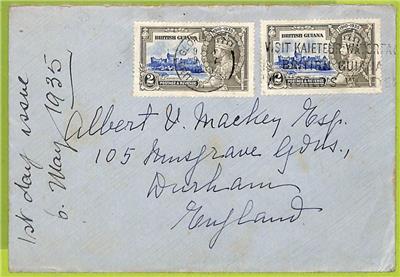 BRITISH GUIANA
2
POSTAGE & REVENUE
BRITISH GUIANA
2
POSTAGE & REVENUE
VISIT KAIETEUR WATERFAL
BRITISH GUIANA
1st day issue
6. May 1935
Albert V. Mackey Esq.
105 Musgrave Gdns,
Durham
England.